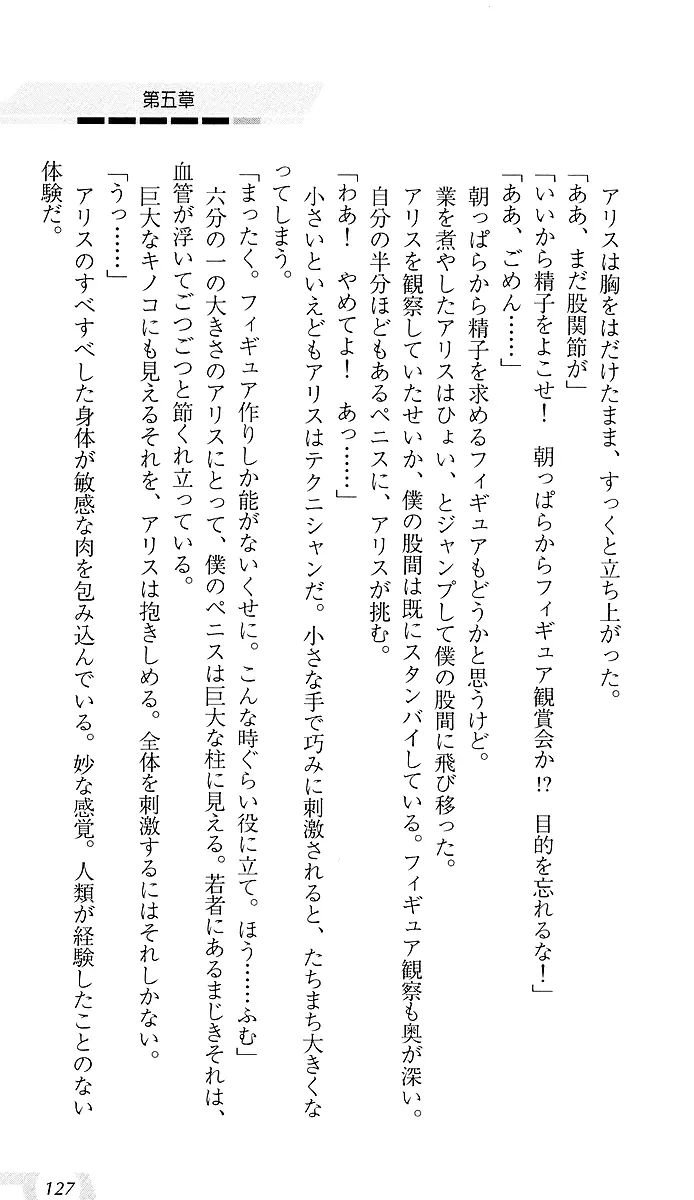 第五章
アリスは胸をはだけたまま、すっくと立ち上がった。
「ああ、まだ股関節が」
「いいから精子をよこせ！　朝っぱらからフィギュア観賞会か!?　目的を忘れるな！」
「ああ、ごめん……」
朝っぱらから精子を求めるフィギュアもどうかと思うけど。
業を煮やしたアリスはひょい、とジャンプして僕の股間に飛び移った。
アリスを観察していたせいか、僕の股間は既にスタンバイしている。フィギュア観察も奥が深い。
自分の半分ほどもあるペニスに、アリスが挑む。
「わあ！　やめてよ！　あっ……」
小さいといえどもアリスはテクニシャンだ。小さな手で巧みに刺激されると、たちまち大きくな
ってしまう。
「まったく。フィギュア作りしか能がないくせに。こんな時ぐらい役に立て。ほう……ふむ」
六分の一の大きさのアリスにとって、僕のペニスは巨大な柱に見える。若者にあるまじきそれは、
血管が浮いてごつごつと節くれ立っている。
巨大なキノコにも見えるそれを、アリスは抱きしめる。全体を刺激するにはそれしかない。
「うっ……」
アリスのすべすべした身体が敏感な肉を包み込んでいる。妙な感覚。人類が経験したことのない
体験だ。
127